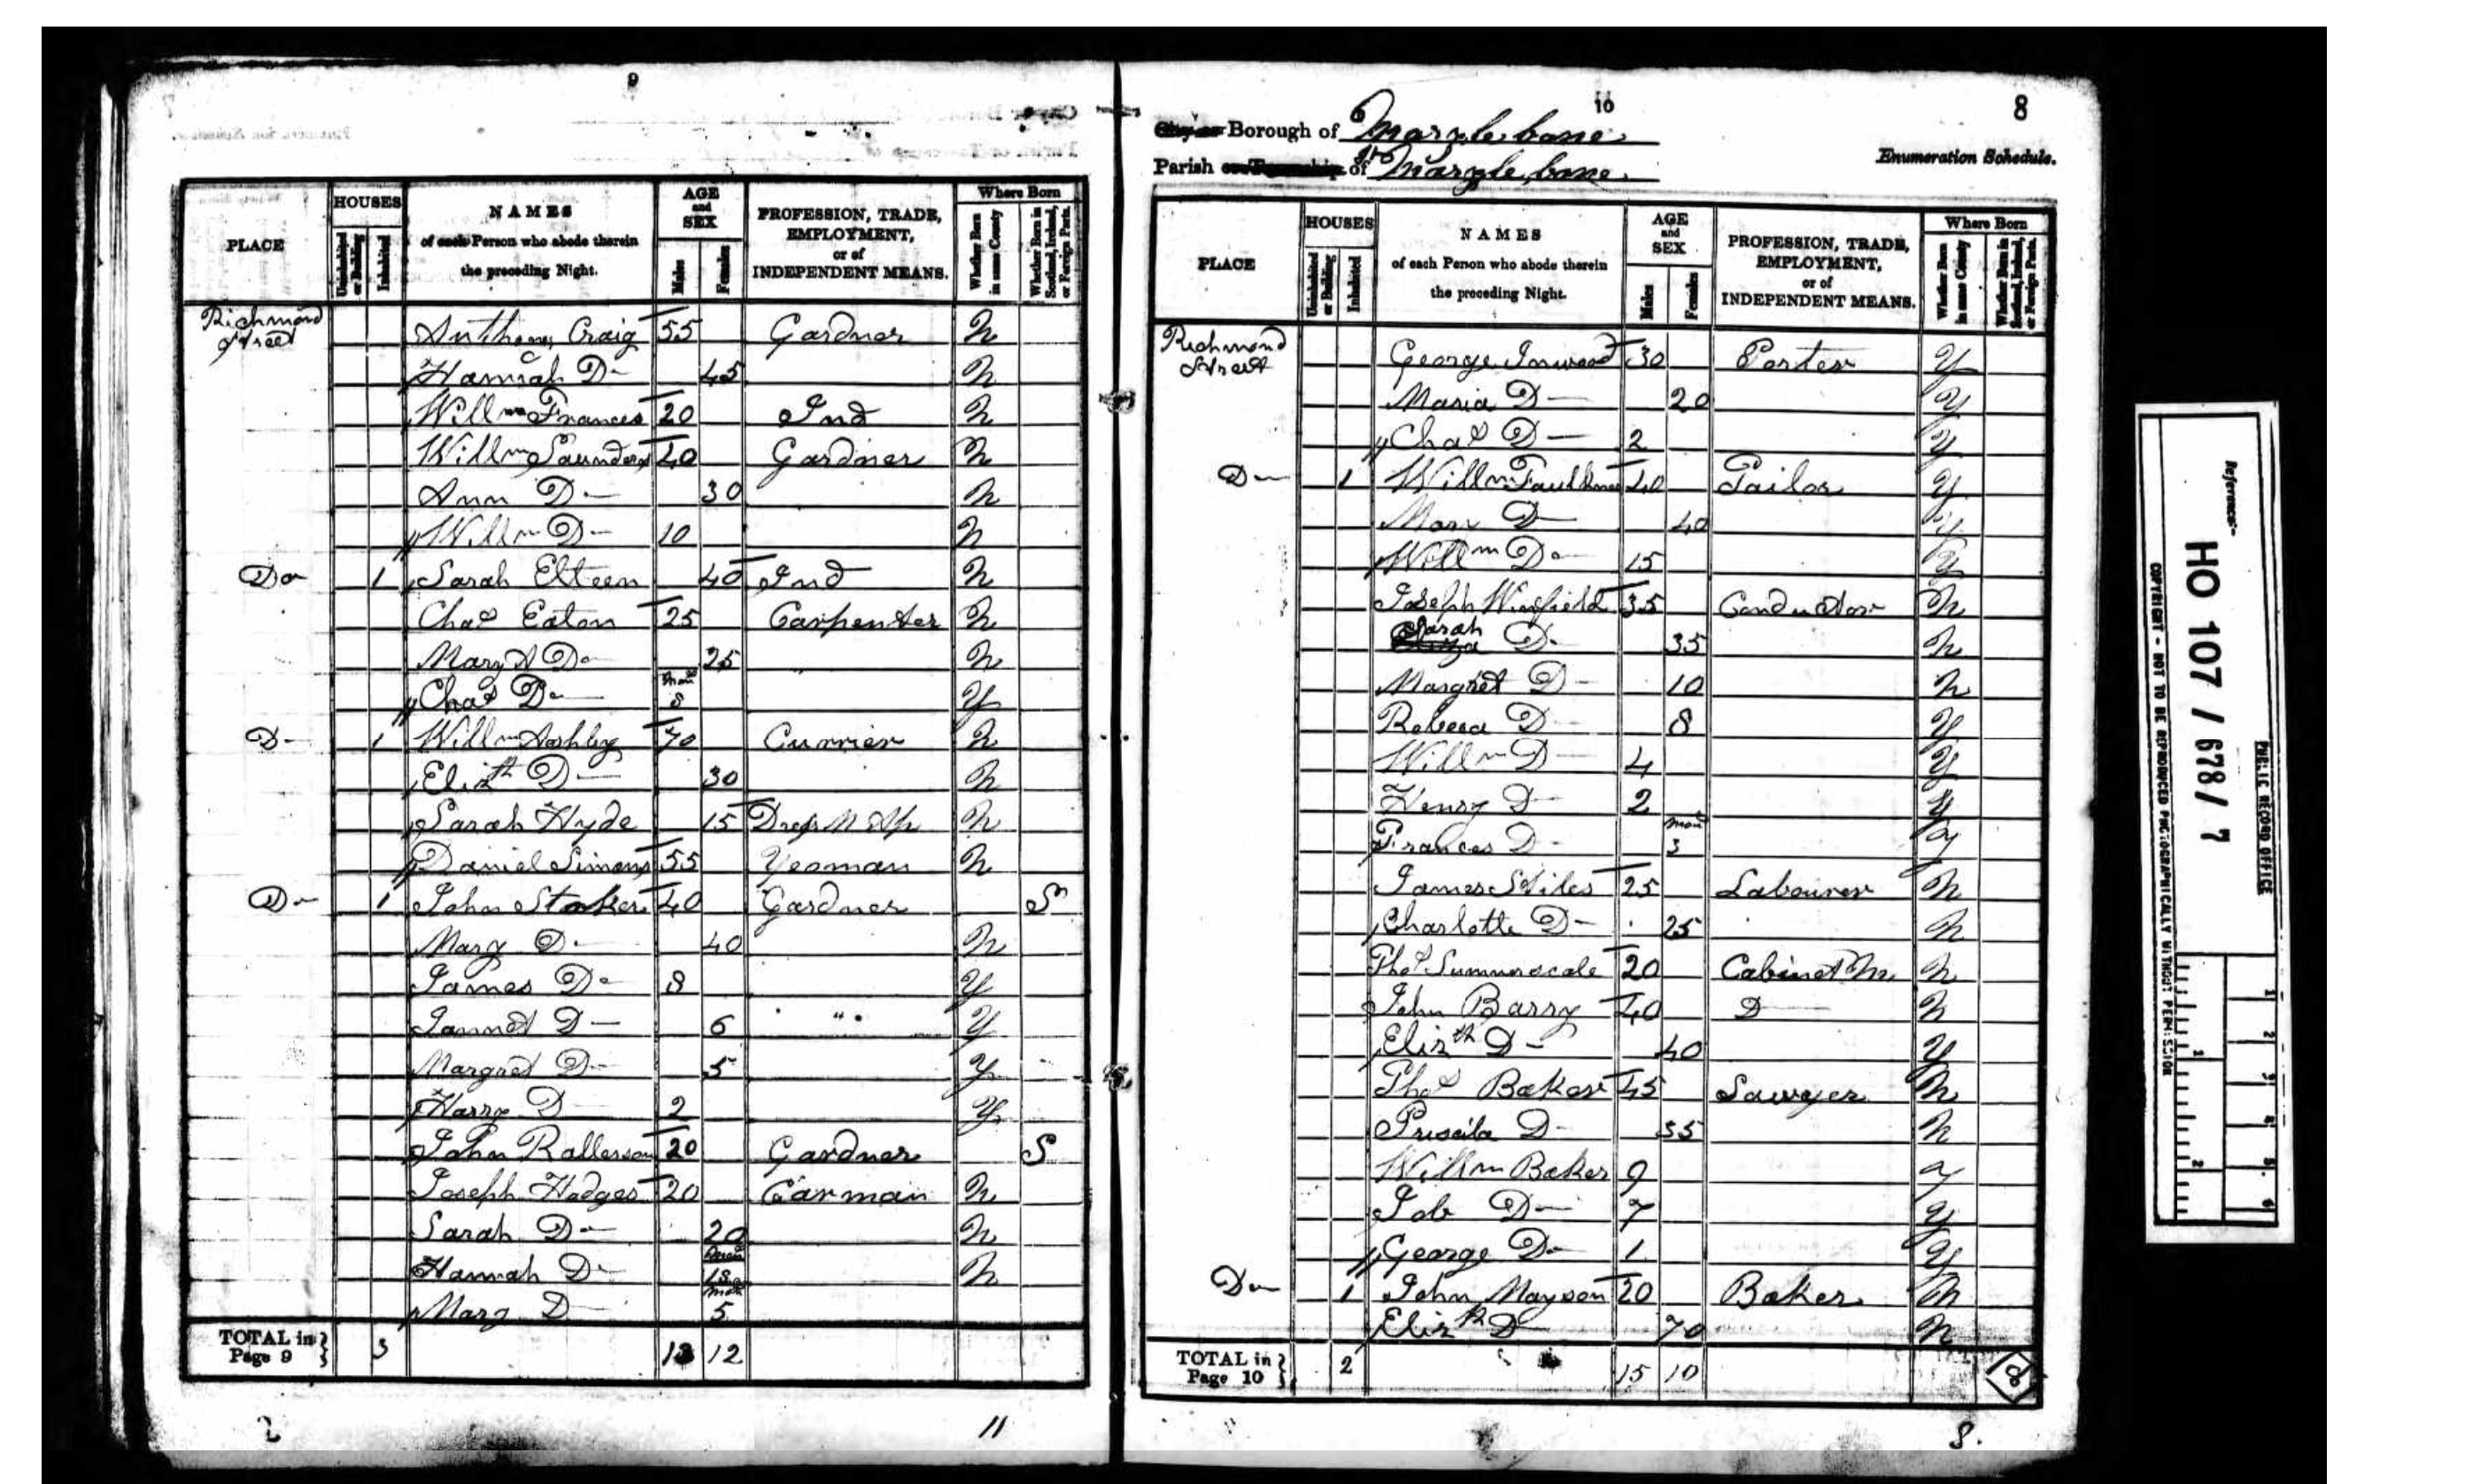 9
PLACE
HOUSES
Uninhabited or Building
Inhabited
NAMES
of each Person who abode therein
the preceding Night.
AGE
and
SEX
Males
Females
PROFESSION, TRADE,
EMPLOYMENT,
or of
INDEPENDENT MEANS.
Where Born
Whether Born in same County
Whether Born in Scotland, Ireland, or Foreign Parts.
Richmond Street Anthony Craig 55 Gardner N
Hannah Do 45 N
Willm Frances 20 Ind N
Willm Saunders 40 Gardner N
Ann Do 30 N
Willm Do 10 N
Do 1 Sarah Elteen 40 Ind N
Chas Eaton 25 Carpenter N
Mary A Do 25 N
Chas Do mon 8 Y
Do 1 Willm Ashby 70 Currier N
Elizth Do 30 N
Sarah Hyde 15 N
Daniel Simons 55 Yeoman N
Do 1 John Stoker 40 Gardner S
Mary Do 40 N
James Do 8 Y
Jannet Do 6 Y
Margret Do 5 Y
Harry Do 2 Y
John Rallerson 20 Gardner S
Joseph Hodges 20 Carman N
Sarah Do 20 N
Hannah Do 18 N
Mary Do mon 5
TOTAL in Page 9 3 13 12
11
10
8
City or Borough of Marylebone
Parish or Township of St Marylebone
Enumeration Schedule.
PLACE
HOUSES
Uninhabited or Building
Inhabited
NAMES
of each Person who abode therein
the preceding Night.
AGE
and
SEX
Males
Females
PROFESSION, TRADE,
EMPLOYMENT,
or of
INDEPENDENT MEANS.
Where Born
Whether Born in same County
Whether Born in Scotland, Ireland, or Foreign Parts.
Richmond Street George Inwood 30 Porter Y
Maria Do 20 Y
Chas Do 2 Y
Do 1 Willm Faulkner 40 Tailor Y
Mary Do 40 Y
Willm Do 15 Y
Joseph Winfield 35 Conductor N
Sarah Do 35 N
Margret Do 10 N
Rebecca Do 8 Y
Willm Do 4 Y
Henry Do 2 Y
Frances Do mon 3 Y
James Stiles 25 Labourer N
Charlotte Do 25 N
Thos Summerscale 20 Cabinet M N
John Barry 40 Do N
Elizth Do 40 Y
Thos Baker 45 Sawyer N
Priscila Do 35 N
Willm Baker 9 Y
Job Do 7 Y
George Do 1 Y
Do 1 John Mayson 20 Baker N
Elizth Do 70 N
TOTAL in Page 10 2 15 10
8.
Reference:-
HO 107 / 678 / 7
PUBLIC RECORD OFFICE
COPYRIGHT - NOT TO BE REPRODUCED PHOTOGRAPHICALLY WITHOUT PERMISSION